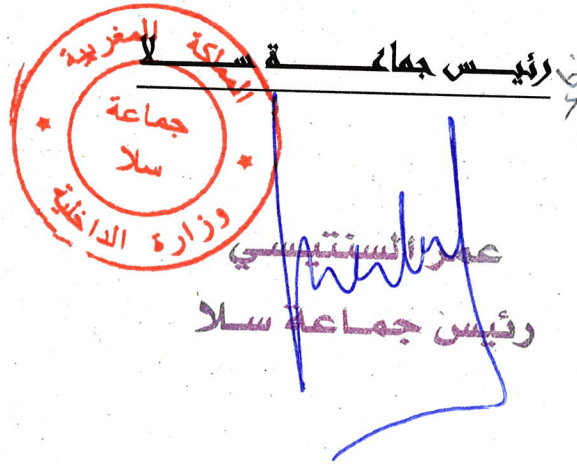 رئيس جماعة سلا
المملكة المغربية
جماعة
سلا
وزارة الداخلية
عمر السنتيسي
رئيس جماعة سلا